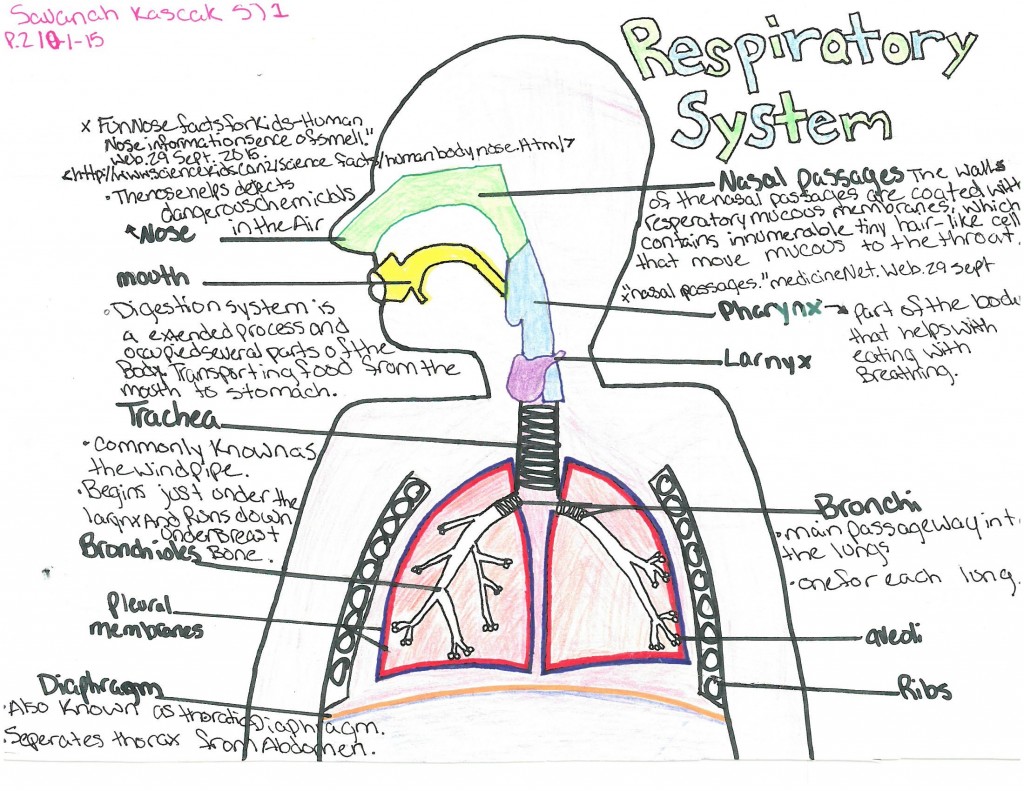 Savanah Kascak S) 1
P.2 10-1-15
Respiratory
System
x Fun Nose facts for Kids-Human
Nose information sence of smell."
Web. 29 Sept. 2015.
<http://www.sciencekids.con2/science facts/humanbodynose.Html/>
• The nose helps detects
dangerous chemicals
in the Air
*Nose
mouth
• Digestion system is
a extended process and
occupied several parts of the
Body. Transporting food from the
mouth to stomach.
Trachea
• Commonly Known as
the windpipe.
• Begins just under the
larynx And Runs down
under Breast
Bone.
Bronchioles
Pleural
membranes
Diaphragm
• Also Known as thoratic Diaphragm.
• Seperates thorax from Abdomen.
Nasal passages The walls
of the nasal passages are coated with
resperatory mucous membranes, which
contains innumerable tiny hair-like cell
that move mucous to the throat.
x"nasal passages." medicineNet. Web. 29 sept
Pharynx → part of the body
that helps with
eating with
Breathing.
Larnyx
Bronchi
• main passageway int
the lungs
• one for each lung.
alveoli
Ribs